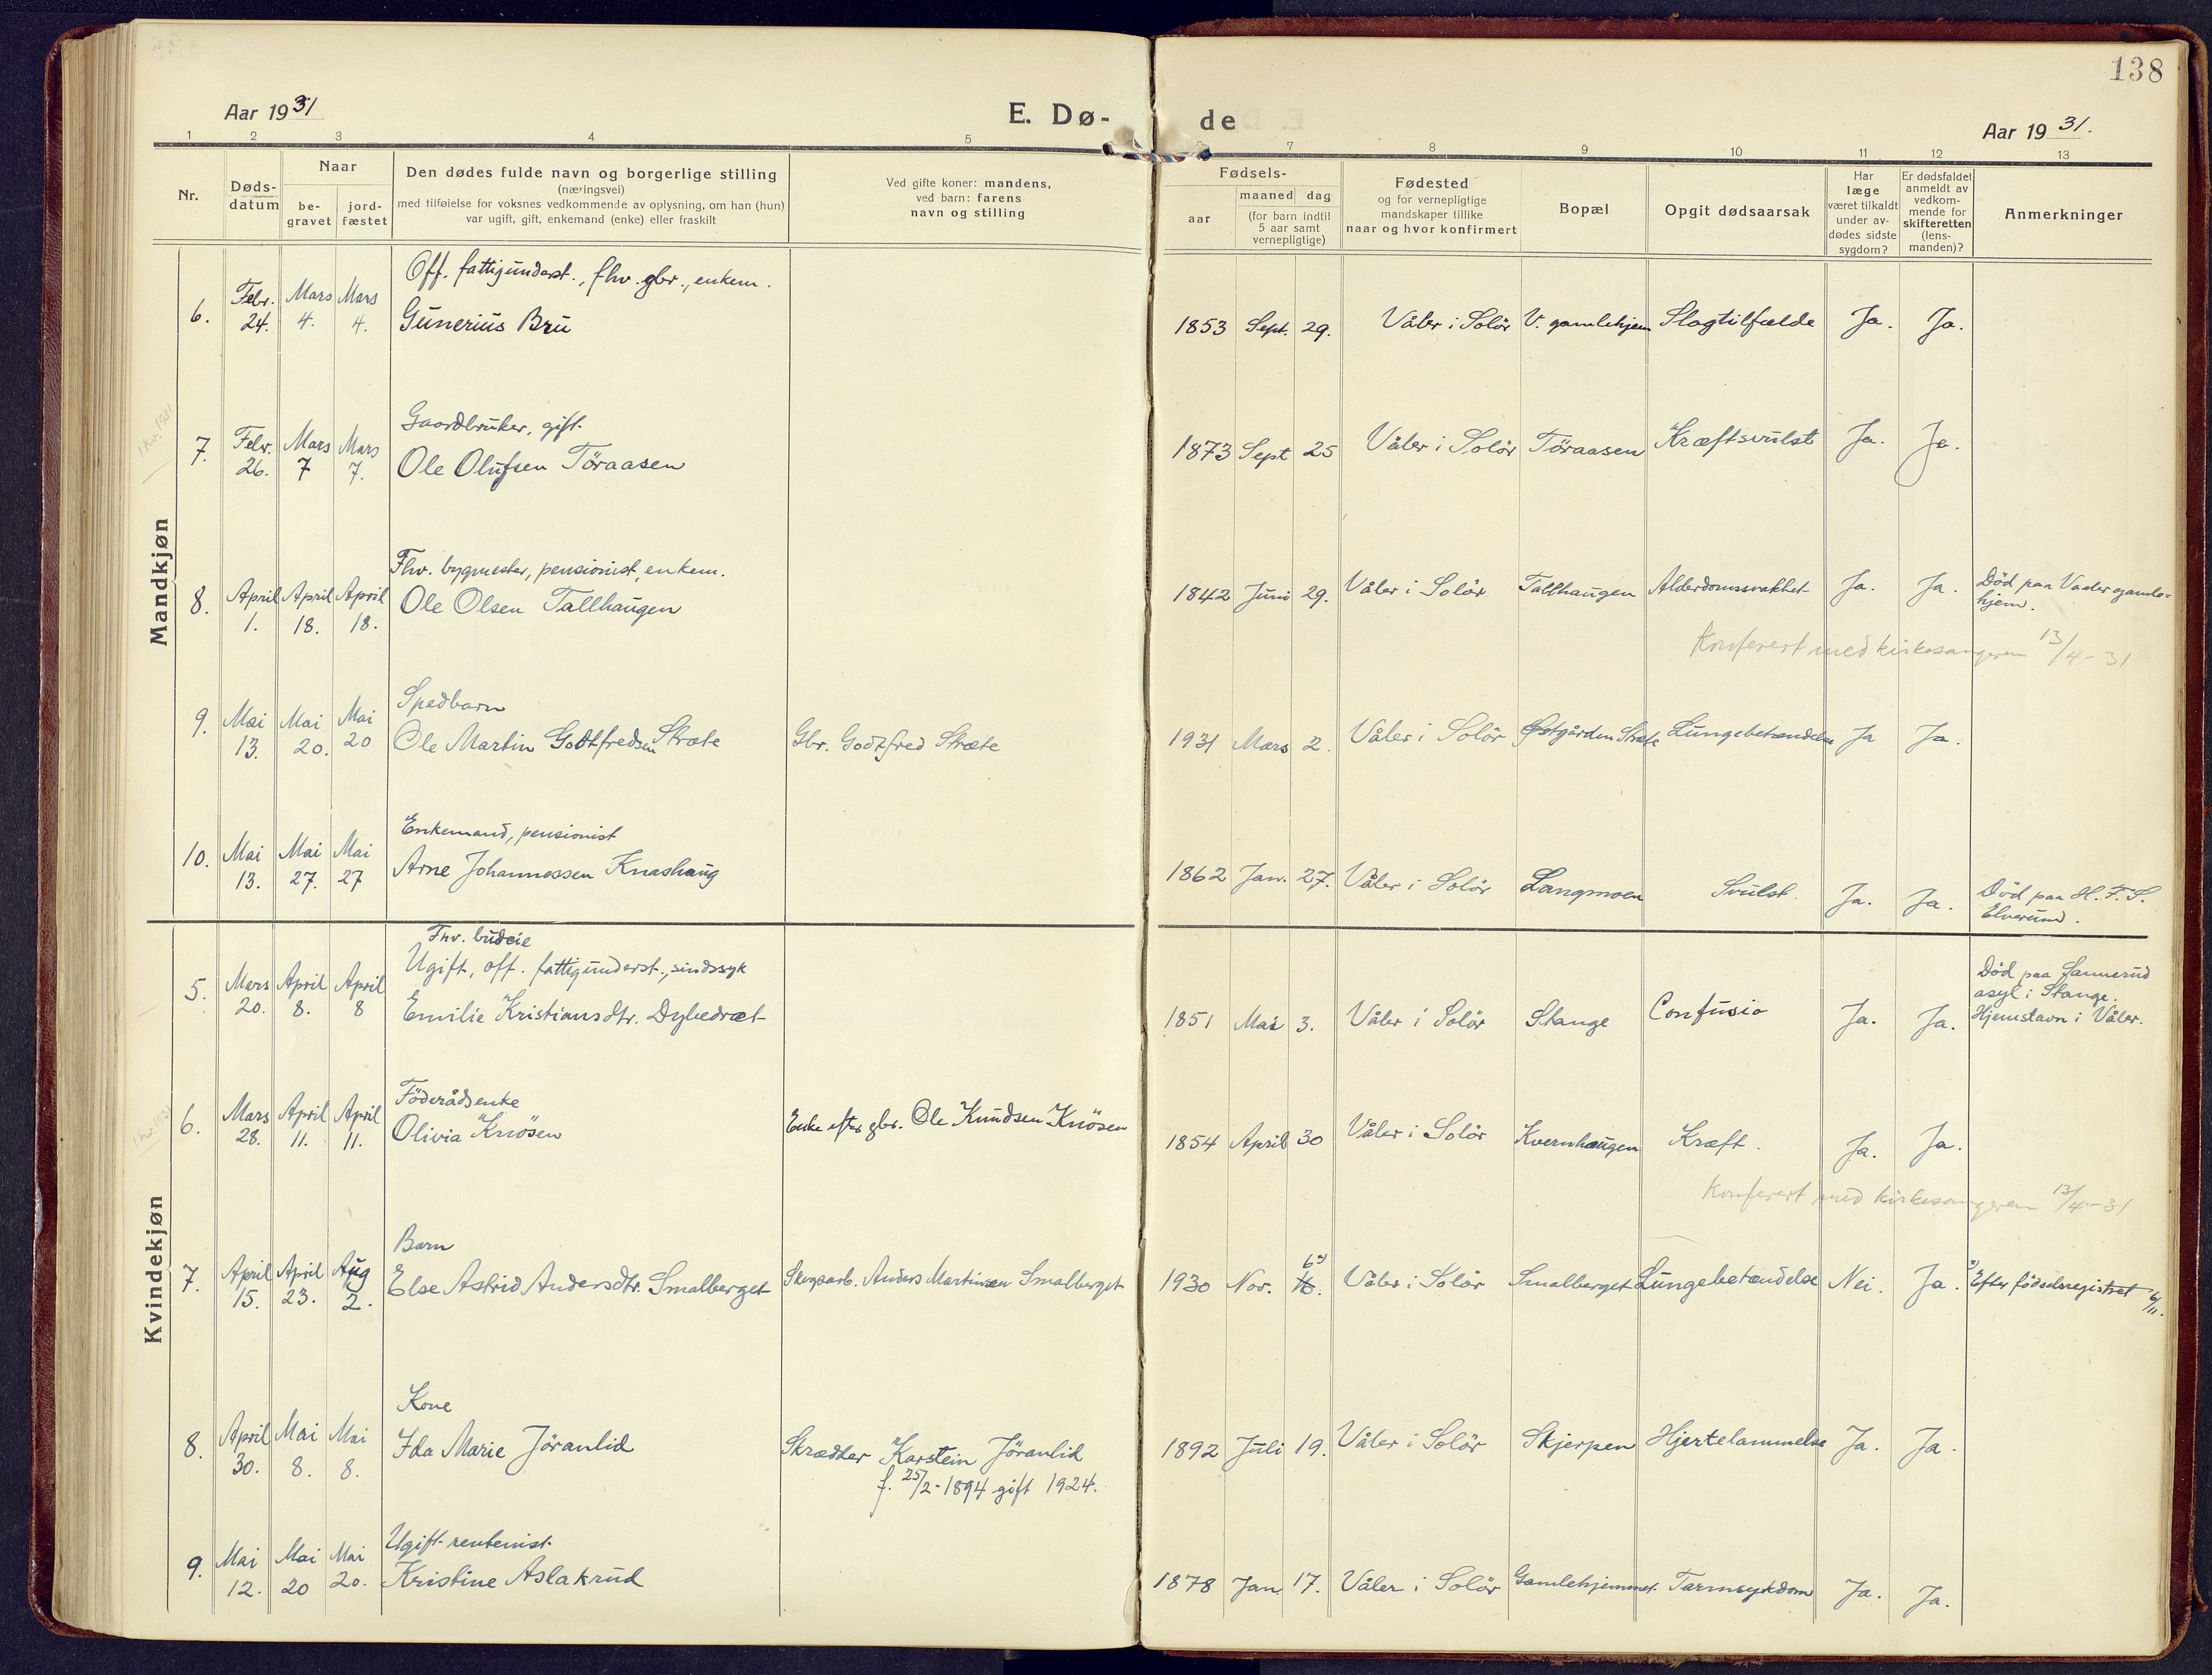 138
Aar 1931
E. Dø-
de
Aar 1931.
1 2 3 4 5 7 8 9 10 11 12 13
Nr.
Døds-
datum
Naar
be-
gravet
jord-
fæstet
Den dødes fulde navn og borgerlige stilling
(næringsvei)
med tilføielse for voksnes vedkommende av oplysning, om han (hun)
var ugift, gift, enkemand (enke) eller fraskilt
Ved gifte koner: mandens,
ved barn: farens
navn og stilling
Fødsels-
aar
maaned dag
(for barn indtil
5 aar samt
vernepligtige)
Fødested
og for vernepligtige
mandskaper tillike
naar og hvor konfirmert
Bopæl
Opgit dødsaarsak
Har
læge
været tilkaldt
under av-
dødes sidste
sygdom?
Er dødsfaldet
anmeldt av
vedkom-
mende for
skifteretten
(lens-
manden)?
Anmerkninger
Mandkjøn
Off. fattigunderst., fhv. gbr., enkem.
6. Febr. 24. Mars 4. Mars 4. Gunerius Bru 1853 Sept. 29. Våler i Solör V. gamlehjem Slagtilfælde Ja. Ja.
1 kv. 1931
Gaardbruker, gift.
7. Febr. 26. Mars 7 Mars 7. Ole Olufsen Töraasen 1873 Sept 25 Våler i Solör Töraasen Kræftsvulst Ja. Ja.
Fhv. bygmester, pensionist, enkem.
8. April 1. April 18. April 18. Ole Olsen Tallhaugen 1842 Juni 29. Våler i Solör Tallhaugen Alderdomssvakhet Ja. Ja. Död paa Vaaler gamle-
hjem.
Konferert med kirkesangeren 13/4-31
Spedbarn
9. Mai 13. Mai 20. Mai 20 Ole Martin Godtfredsen Stræte Gbr. Godtfred Stræte 1931 Mars 2. Våler i Solör Østgården Stræte Lungebetændelse Ja Ja.
Enkemand, pensionist
10. Mai 13. Mai 27. Mai 27 Arne Johannessen Knashaug 1862 Jan. 27. Våler i Solör Langmoen Svulst. Ja. Ja. Död paa H. F. S.
Elverum.
Kvindekjøn
Fhv. budeie
Ugift, off. fattigunderst., sindssyk
5. Mars 20. April 8. April 8 Emilie Kristiansdtr. Dybedræt 1851 Mai 3. Våler i Solör Stange Confusio Ja. Ja. Död paa Sannerud
asyl i Stange.
Hjemstavn i Våler.
1 kv. 1931
Föderådsenke
6. Mars 28. April 11. April 11. Olivia Knösen Enke efter gbr. Ole Knudsen Knösen 1854 April 30 Våler i Solör Kvernhaugen Kræft. Ja. Ja.
Konferert med kirkesangeren 13/4-31
Barn
7. April 15. April 23. Aug 2. Else Astrid Andersdtr. Smalberget Skogsarb. Anders Martinsen Smalberget 1930 Nov. 6 16. Våler i Solör Smalberget Lungebetændelse Nei. Ja. Efter födselsregistret 6/11.
Kone
8. April 30. Mai 8. Mai 8. Ida Marie Jöranlid Skrædder Karstein Jöranlid 1892 Juli 19. Våler i Solör Skjerpen Hjertelammelse Ja. Ja.
f. 25/2-1894 gift 1924.
Ugift rentenist.
9. Mai 12. Mai 20 Mai 20. Kristine Aslakrud 1878 Jan. 17. Våler i Solör Gamlehjemmet. Tarmsykdom Ja. Ja.